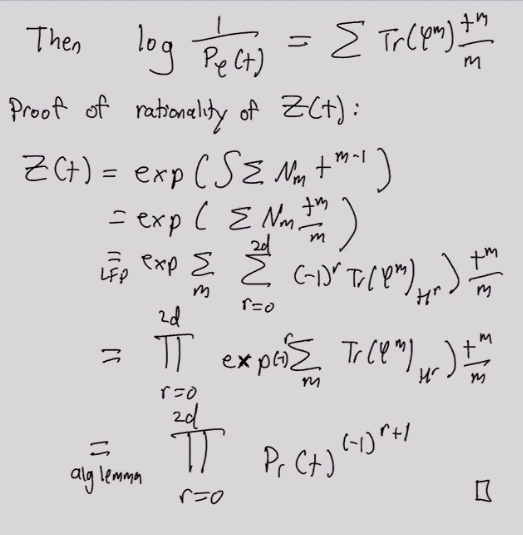 Then log 1/Pφ(t) = Σ Tr(φ^m) t^m/m
Proof of rationality of Z(t):
Z(t) = exp(∫Σ N_m t^{m-1})
= exp( Σ N_m t^m/m )
=_{LFP} exp Σ_m Σ_{r=0}^{2d} (-1)^r Tr(φ^m)_{H^r}) t^m/m
= ∏_{r=0}^{2d} exp(-1)^r Σ_m Tr(φ^m)_{H^r}) t^m/m
=_{alg lemma} ∏_{r=0}^{2d} P_r(t)^{(-1)^{r+1}} □